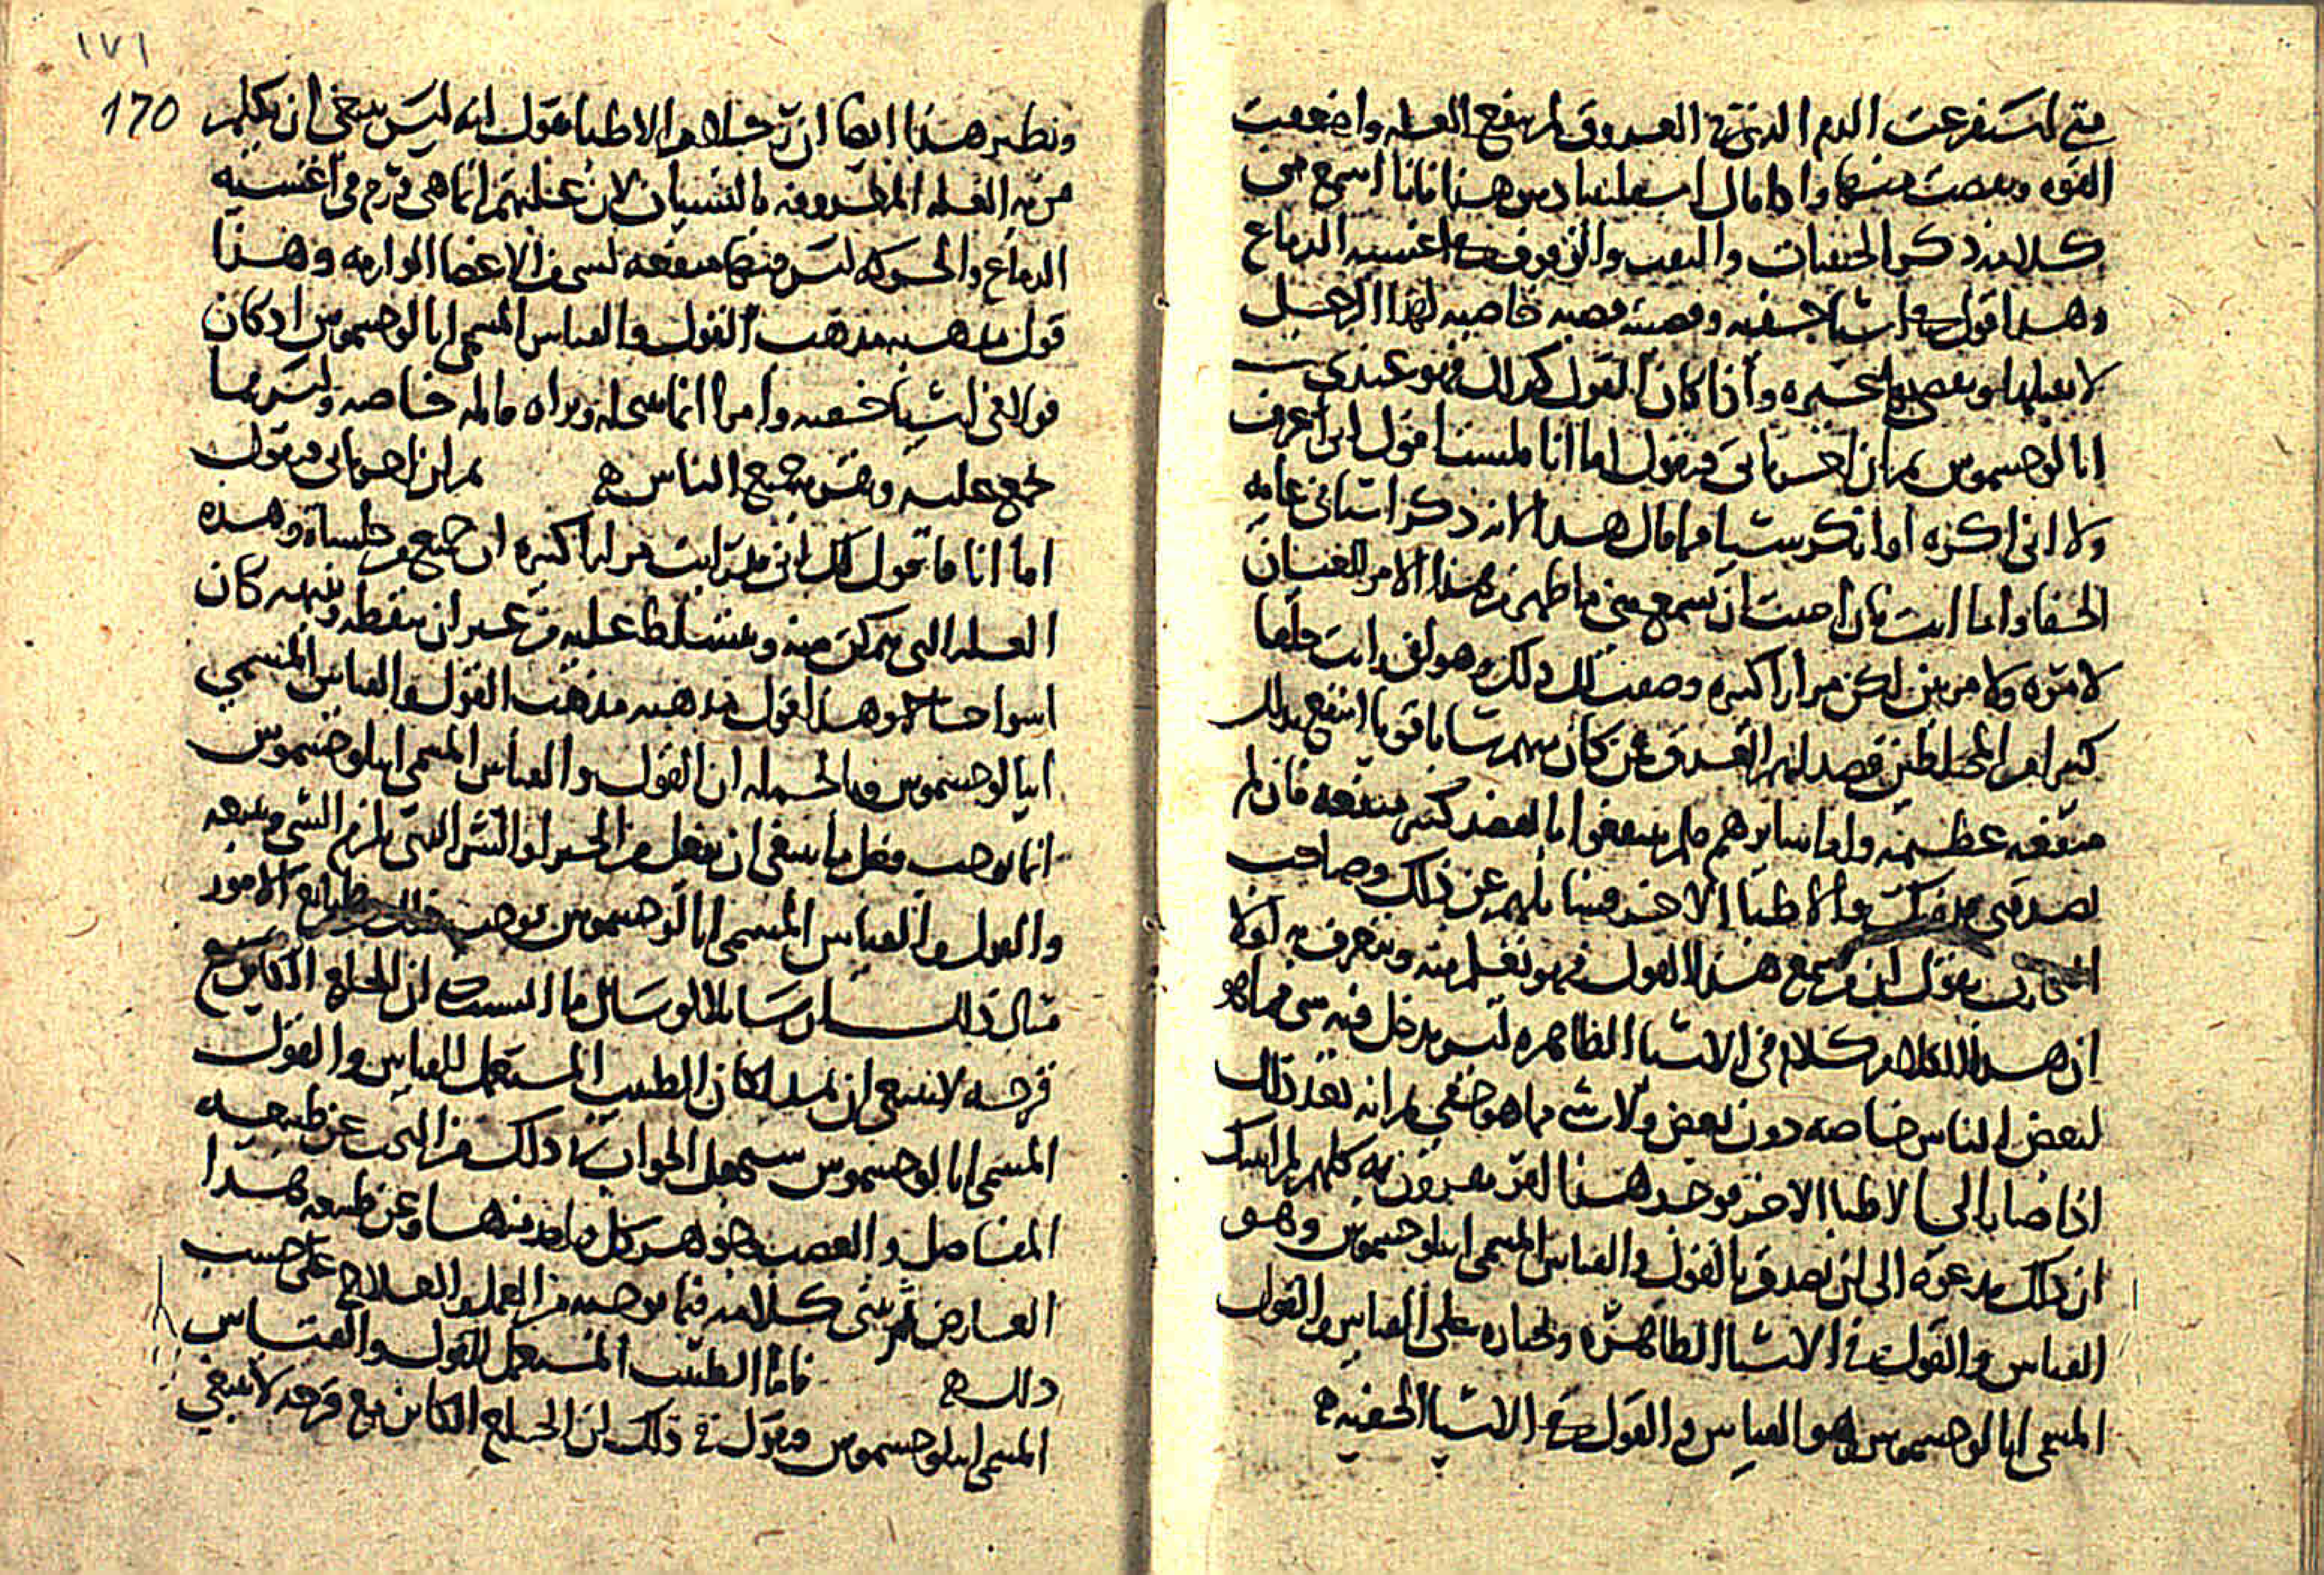 متى استفرغت الدم الذي في العروق لم ينفع العله واضعفت
القوه ونقصت منها واذا قال اسقلنبيادس هذا فانا اسمع في
كلامه ذكر الخفيات والثقب والزفوف اغشيه الدماغ
وهذا قول اشيا خفيه وقصته قصه خاصيه لهذا الرجل
لا يقبلها غيره واذا كان القول كذلك فهو عندي
انا لوجسموس ثم ان اصحابى فيقول اما انا فلست اقول اني اعرف
ولا اني اكره اوانكر شيا مما قال هذا لانه ذكر اشيا في غايه
الخفا واما انت فان احببت ان تسمع مني ما ظهر من هذا الامر للعيان
لا مره ولا مرتين لكن مرارا كثيره وصفت لك ذلك وهو اني رايت خلقا
كثيرا من المختلطين فصد لهم العرق فمن كان منهم شابا قويا انتفع بذلك
منفعه عظيمه واما سايرهم فلم ينتفعوا بالفصد كثير منفعه فان لم
تصدقني فدونك والاطبا الاخر فسايلهم عن ذلك وصاحب
التجارب يقول ان من سمع هذا القول فهو يقبل منه ويعترف به اولا
ان هذا الكلام كلام في الاشيا الظاهره ليس يدخل فيه شي مما هو
لبعض الناس خاصه دون بعض ولا شي مما هو خفي ثم انه بعد ذلك
اذا صار الى الاطبا الاخر فوجد هذا القر يعترفون به كلهم لم يشك
ان ذلك يدعوه الى ان يصدق بالقول والقياس المسمى ابيلوجسموس وهو
القياس والقول في الاشيا الظاهره ويختاره على القياس والقول
المسمى انا لوجسموس وهو القياس والقول في الاشيا الخفيه ه
١٧١
170
ونظير هذا ايضا ان رجلا من الاطبا يقول انه ليس ينبغي ان يكلم
من به العله المعروفه بالنسيان لان علتهم انما هي ورم في اغشيه
الدماغ والحركه ليس فيها منفعه لشي من الاعضا الوارمه وهذا
قول مذهبه مذهب القول والقياس المسمى انا لوجسموس اذ كان
قولا في اشيا خفيه وامرا انما ينتحله ويراه قايله خاصه وليس مما
يجمع عليه ويقر به جميع الناس ه ثم ان اصحابى فيقول
اما انا فاقول لك اني قد رايت مرارا كثيره ان جميع من خلياه وهذه
العله التي تمكن منه وتتسلط عليه من غير ان نيقظه وننبهه كان
اسوا حالا وهذا قول مذهبه مذهب القول والقياس المسمى
ابيالوجسموس وبالجمله ان القول والقياس المسمى ابيلوجسموس
انما يوجب فعل ما ينبغي ان يفعل من الخير او الشر التي يلزم الشي ويتبعه
والقول والقياس المسمى انا لوجسموس يوجب ذلك من طبايع الامور
مثال ذلك ان سايلا لو سال ما السبب ان الخلع الكاين مع
قرحه لا ينبغي ان يمد لكان الطبيب المستعمل للقياس والقول
المسمى انا لوجسموس سيجعل الجواب في ذلك من البحث عن طبيعه
المفاصل والعصب وجوهر كل واحد منها وعن طبيعه هذا
العارض ثم يبني كلامه فيما يوجبه من العمل والعلاج على حسب
ذلك ه فاما الطبيب المستعمل للقول والقياس
المسمى ابيلوجسموس فيقول في ذلك ان الخلع الكاين مع قرحه لا ينبغي